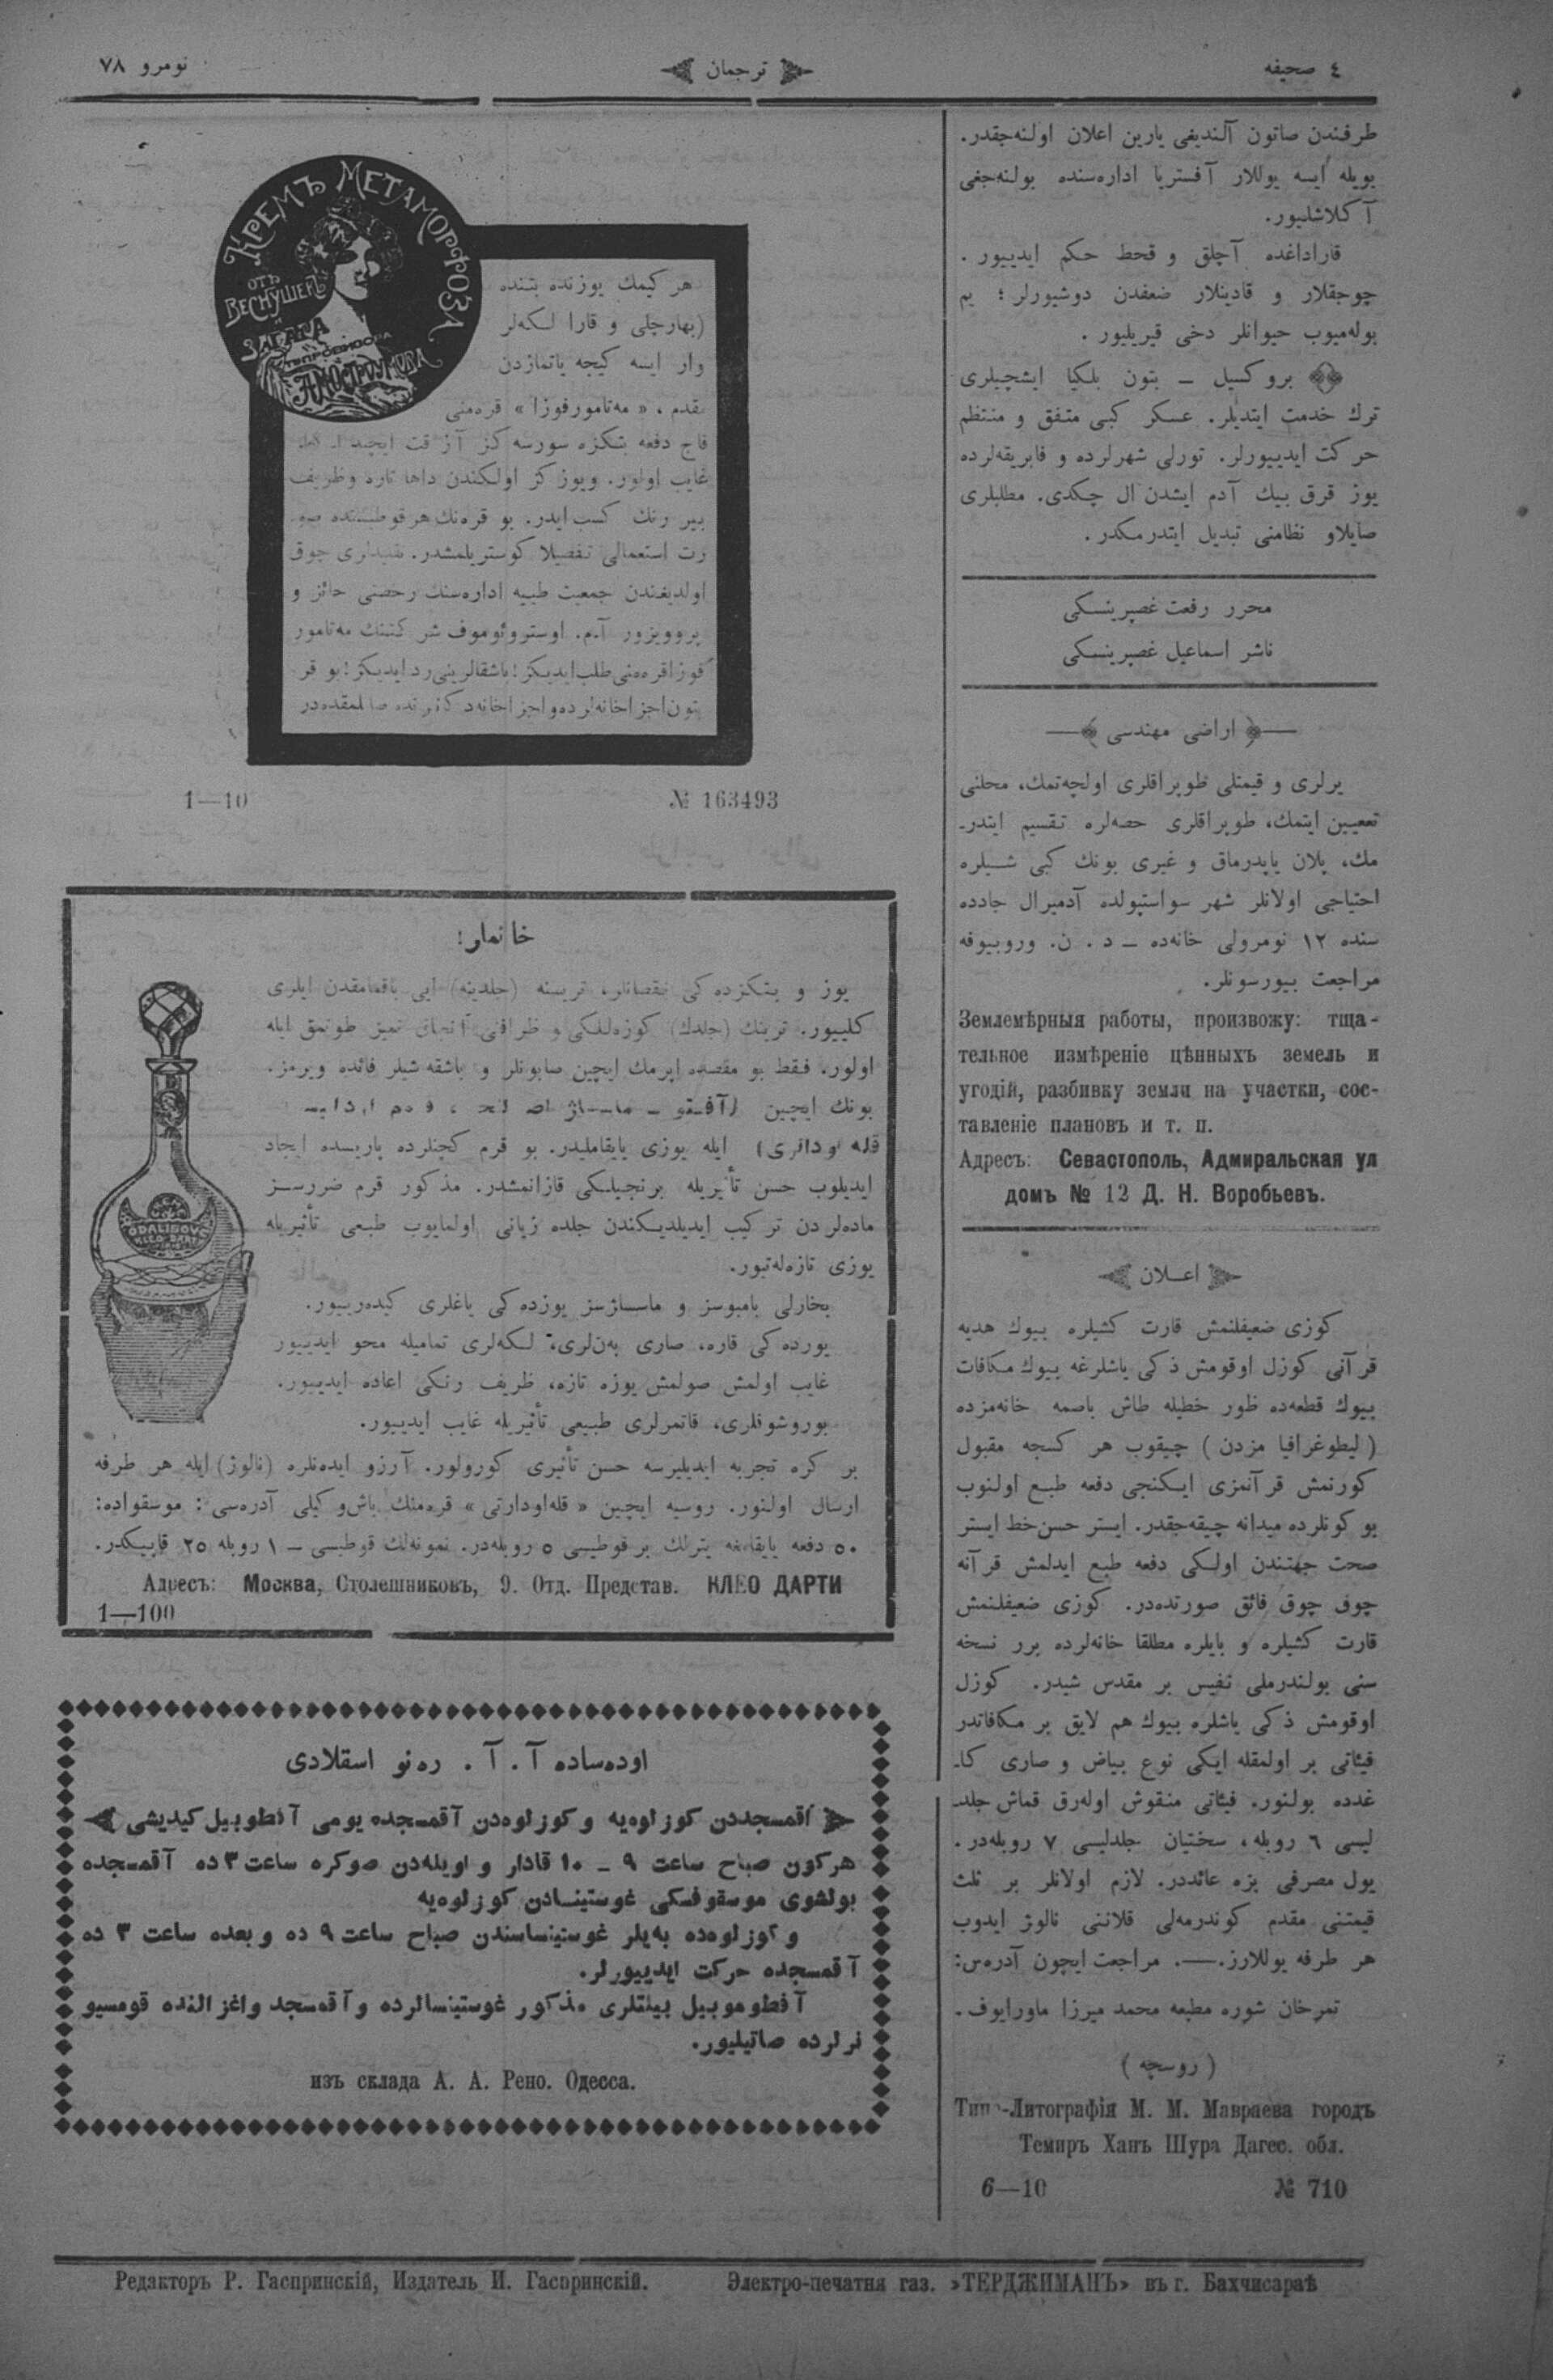 ٤ صحيفه
ترجمان
نومرو ٧٨
طرفندن صاتون آلنديغى يارين اعلان اولنه‌جقدر.
بويله ايسه يوللار آفستريا اداره‌سنده بولنه‌جغى
آكلاشليور.
قاراداغده آچلق و قحط حكم ايدييور.
چوجقلار و قادينلار ضعفدن دوشيورلر؛ يم
بوله‌ميوب حيوانلر دخى قيريليور.
بروكسيل ــ بتون بلكيا ايشچيلرى
ترك خدمت ايتديلر. عسكر كبى متفق و منتظم
حركت ايدييورلر. تورلى شهرلرده و فابريقه‌لرده
يوز قرق بيك آدم ايشدن ال چكدى. مطلبلرى
صايلاو نظامنى تبديل ايتدرمكدر.
محرر رفعت غصپرينسكى
ناشر اسماعيل غصپرينسكى
اراضى مهندسى
يرلرى و قيمتلى طوپراقلرى اولچه‌تمك، محلنى
تعيين ايتمك، طوپراقلرى حصه‌لره تقسيم ايتدر-
مك، پلان ياپدرماق و غيرى بونك كبى شيلره
احتياجى اولانلر شهر سواستپولده آدميرال جادده
سنده ١٢ نومرولى خانه‌ده ــ د. ن. وروبيوفه
مراجعت بيورسونلر.
Землемѣрныя работы, произвожу: тща-
тельное измѣреніе цѣнныхъ земель и
угодій, разбивку земли на участки, сос-
тавленіе плановъ и т. п.
Адресъ: Севастополь, Адмиральская ул
домъ № 12 Д. Н. Воробьевъ.
اعــلان
كوزى ضعيفلنمش قارت كشيلره بيوك هديه
قرآنى كوزل اوقومش ذكى ياشلرغه بيوك مكافات
بيوك قطعه‌ده ظور خطيله طاش باصمه خانه‌مزده
(ليطوغرافيا مزدن) چيقوب هر كسجه مقبول
كورنمش قرآنمزى ايكنجى دفعه طبع اولنوب
بو كونلرده ميدانه چيقه‌جقدر. ايستر حسن خط ايستر
صحت جهتندن اولكى دفعه طبع ايدلمش قرآنه
چوق چوق فائق صورتده‌در. كوزى ضعيفلنمش
قارت كشيلره و بايلره مطلقا خانه‌لرده برر نسخه
سنى بولندرملى نفيس بر مقدس شيدر. كوزل
اوقومش ذكى ياشلره بيوك هم لايق بر مكافاتدر
فيئاتى بر اولمقله ايكى نوع بياض و صارى كا-
غدده بولنور. فيئاتى منقوش اوله‌رق قماش جلد-
ليسى ٦ روبله، سختيان جلدليسى ٧ روبله‌در.
يول مصرفى بزه عائددر. لازم اولانلر بر ثلث
قيمتنى مقدم كوندرمه‌لى قلاننى نالوژ ايدوب
هر طرفه يوللارز.—. مراجعت ايچون آدرەس:
تمرخان شوره مطبعه محمد ميرزا ماورايوف.
(روسچه)
Типо-Литографія М. М. Мавраева городъ
Темиръ Ханъ Шура Дагес. обл.
6—10 № 710
КРЕМЪ МЕТАМОРФОЗА
ОТЪ
ВЕСНУШЕКЪ
ЗАГАРА
هر كيمك يوزنده بتنده
(بهارجلى و قارا لكه‌لر
وار ايسه كيجه ياتمازدن
مقدم، «مەتامورفوزا» قرەمنى
قاچ دفعه بتكزه سورسه‌كز آز وقت ايچنده
غايب اولور. و يوزكز اولكندن داها تازه و ظريف
بير رنك كسب ايدر. بو قرەمك هر قوطيسنده صو-
رت استعمالى تفصيلا كوستريلمشدر. تقليدلرى چوق
اولديغندن جمعيت طبيه اداره‌سنك رخصتى حائز و
پروويزور آ.م. اوستروئوموف شركتنك مەتامور
فوزا قرەمنى طلب ايديكز! باشقالرينى رد ايديكز! بو قر
بتون اجزاخانه‌لرده و اجزاخانه دكانلرنده صاتلمقده‌در
1—10 № 163493
خانملر!
يوز و بتكزده‌كى نقصانلر، تريسنه (جلدينه) ايى باقمامقدن ايلرى
كلييور. ترينك (جلدك) كوزەللكى و ظرافتى آنجاق تميز طوتمق ايله
اولور. فقط بو مقصده ايرمك ايچين صابونلر و باشقه شيلر فائده ويرمز.
بونك ايچين
ايله يوزى يايقامليدر. بو قرم كچنلرده پاريسده ايجاد
ايديلوب حسن تأثيريله برنجيلكى قازانمشدر. مذكور قرم ضررسز
ماده‌لردن تركيب ايديلديكندن جلده زيانى اولمايوب طبيعى تأثيريله
يوزى تازەلەتيور.
بخارلى بامبوسز و ماساژسز يوزده‌كى ياغلرى كيده‌رييور.
يوزده‌كى قاره، صارى بەن‌لرى، لكه‌لرى تماميله محو ايدييور
غايب اولمش صولمش يوزه تازه، ظريف رنكى اعاده ايدييور.
بوروشوقلرى، قاتمرلرى طبيعى تأثيريله غايب ايدييور.
بر كره تجربه ايديليرسه حسن تأثيرى كورولور. آرزو ايده‌نلره (نالوژ) ايله هر طرفه
ارسال اولنور. روسيه ايچين «قله‌اودارتى» قرەمنك باش وكيلى آدره‌سى: موسقواده:
٥٠ دفعه يايقانمغه يترلك بر قوطيسى ٥ روبله‌در. نمونه‌لك قوطيسى ــ ١ روبله ٢٥ قاپيكدر.
Адресъ: Москва, Столешниковъ, 9. Отд. Представ. КЛЕО ДАРТИ
1—100
اوده‌ساده آ. آ. ره‌نو اسقلادى
آقمسجددن كوزلوه‌يه و كوزلوه‌دن آقمسجده يومى آفطوبيل كيديشى
هركون صباح ساعت ٩ ــ ١٠ قادار و اويله‌دن صوكره ساعت ٣ ده آقمسجده
بولشوى موسقوفسكى غوستينسادن كوزلوه‌يه
و كوزلوه‌ده به‌يلر غوستينساسندن صباح ساعت ٩ ده و بعده ساعت ٣ ده
آقمسجده حركت ايدييورلر.
آفطوموبيل بيلتلرى مذكور غوستينسالرده و آقمسجد واغزالنده قومسيو
نرلرده صاتيليور.
изъ склада А. А. Рено. Одесса.
Редакторъ Р. Гаспринскій, Издатель И. Гаспринскій.
Электро-печатня газ. »ТЕРДЖИМАНЪ» въ г. Бахчисараѣ